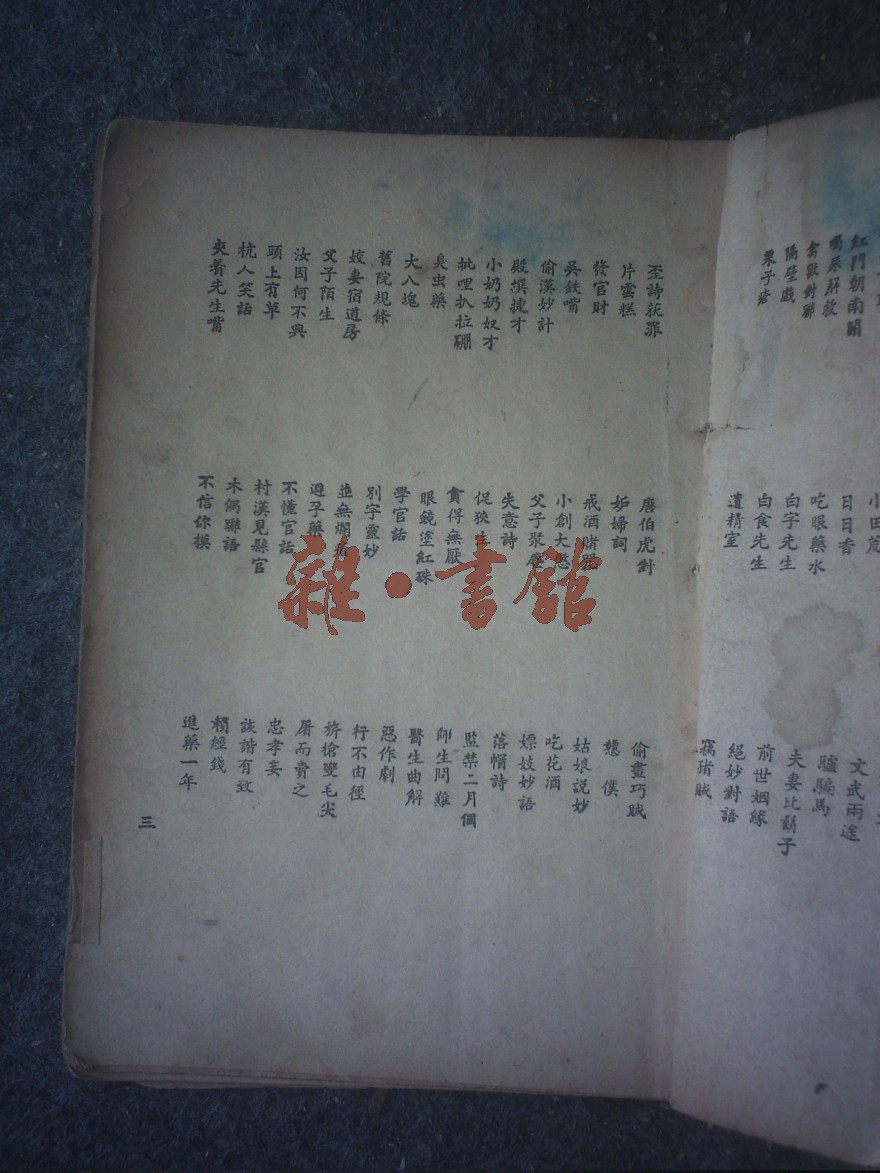 紅門朝南開
喝尿解救
禽獸對聯
隔壁戲
日日香
吃眼藥水
白字先生
白食先生
遺精室
文武兩途
驢騙馬
夫妻比鬍子
前世姻緣
絕妙對語
竊豬賊
歪詩訧罪
片雲糕
發官財
吳鉄嘴
偷漢妙計
殿撰捷才
小奶奶奴才
批哩扒拉硼
臭虫藥
大八塊
舊院規條
姣妻宿道房
父子陌生
汝因何不興
頭上有草
杭人笑話
夾着先生嘴
唐伯虎對
妬婦詞
戒酒賭
小創大懲
父子聚
失意詩
促狹生
貪得無厭
眼鏡塗紅硃
學官話
別字靈妙
並無爛
避孕藥
不懂官話
村漢見縣官
木偶聯語
不信你摸
偷畫巧賊
戇僕
姑娘說妙
吃花酒
嫖妓妙語
落帽詩
監禁二月個
師生問難
醫生曲解
惡作劇
行不由徑
旂槍變毛尖
屠而賣之
忠孝妾
詼諧有效
賴經錢
進藥一年
三
雜·書館